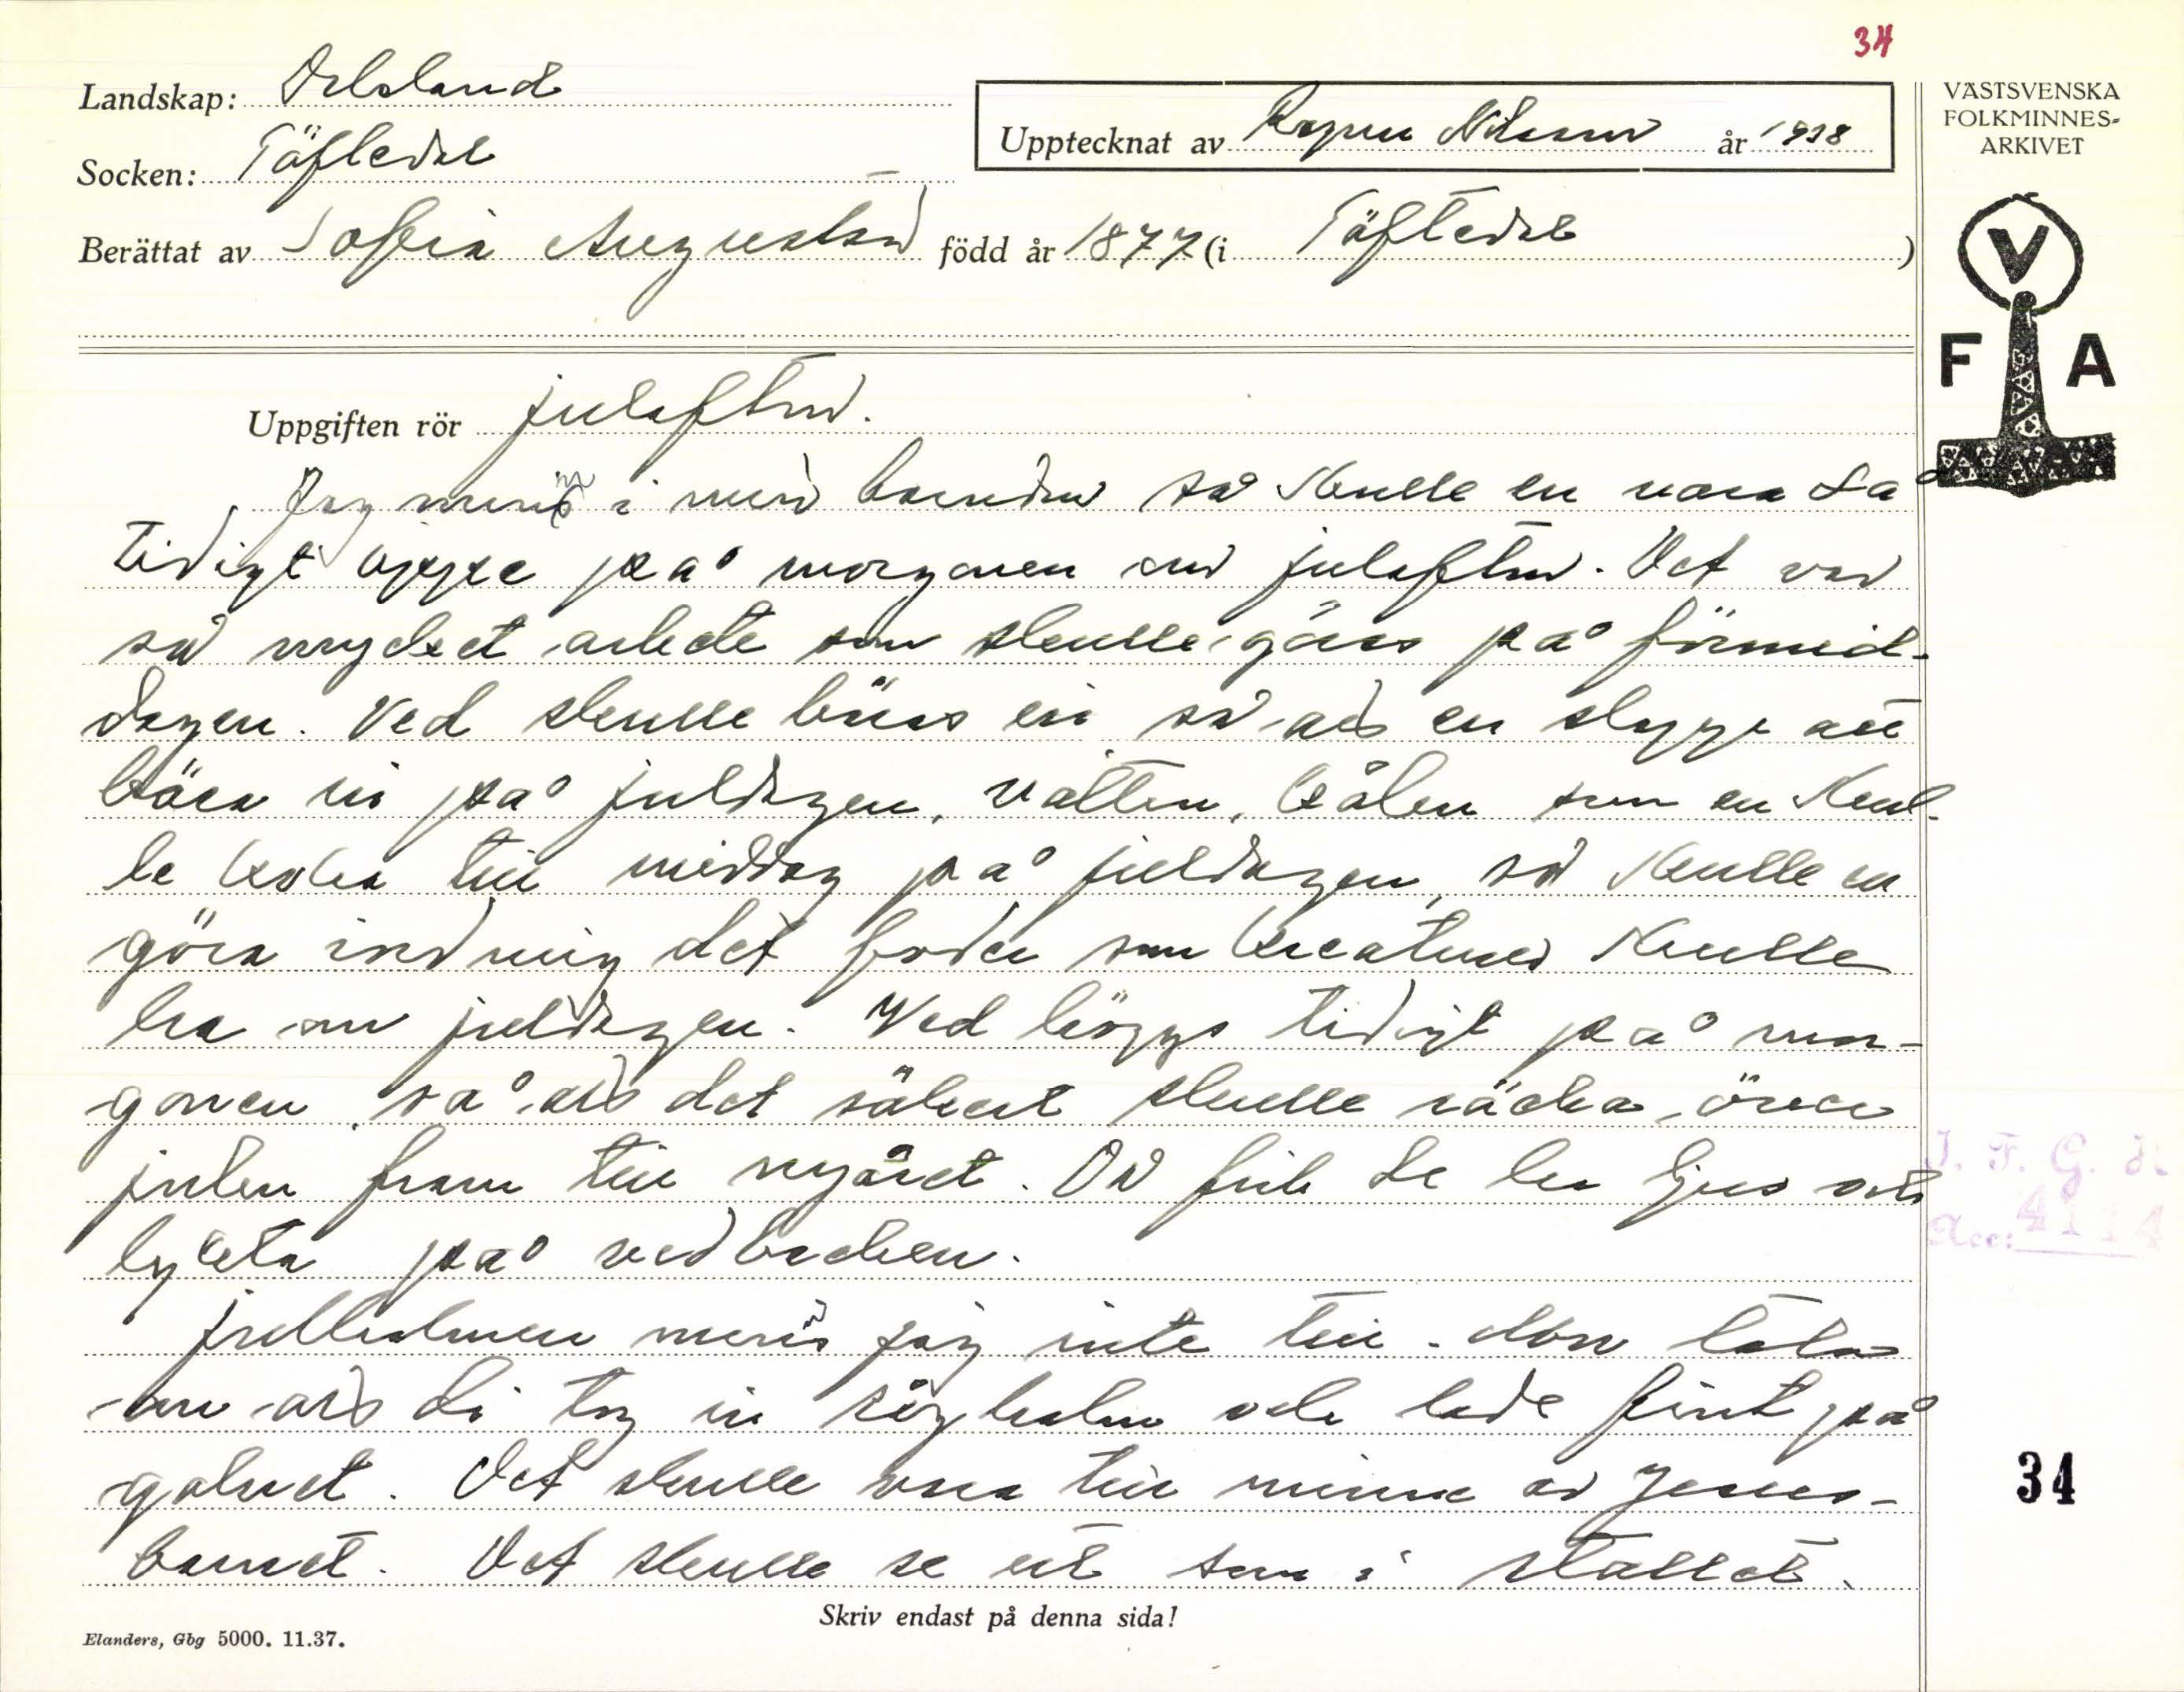 34
Landskap: Dalsland
Upptecknat av Ragnar Nilsson år 1938
Socken: Töftedal
Berättat av Sofia Augustsson född år 1877 (i Töftedal)
VÄSTSVENSKA
FOLKMINNES-
ARKIVET
V
F A
Uppgiften rör julafton.
Jag minns i min barndom så skulle en vara så
tidigt oppe på morgonen om julafton. Det var
så mycket arbete som skulle göras på förmid-
dagen. Ved skulle bäras in så att en slapp att
bära in på juldagen, vatten, kålen som en skul-
le koka till middag på juldagen, så skulle en
göra iordning det foder som kreaturen skulle
ha om juldagen. Ved höggs tidigt på mor-
gonen så att det säkert skulle räcka över
julen fram till nyåret. Då fick de ha ljus och
lykta på vedbacken.
Julhalmen minns jag inte till. Mor tala
om att di tog in råghalm och lade fint på
golvet. Det skulle vara till minne av Jesus-
barnet. Det skulle se ut som i stallet.
I. F. G. H.
Acc: 4114
34
Skriv endast på denna sida!
Elanders, Gbg 5000. 11.37.